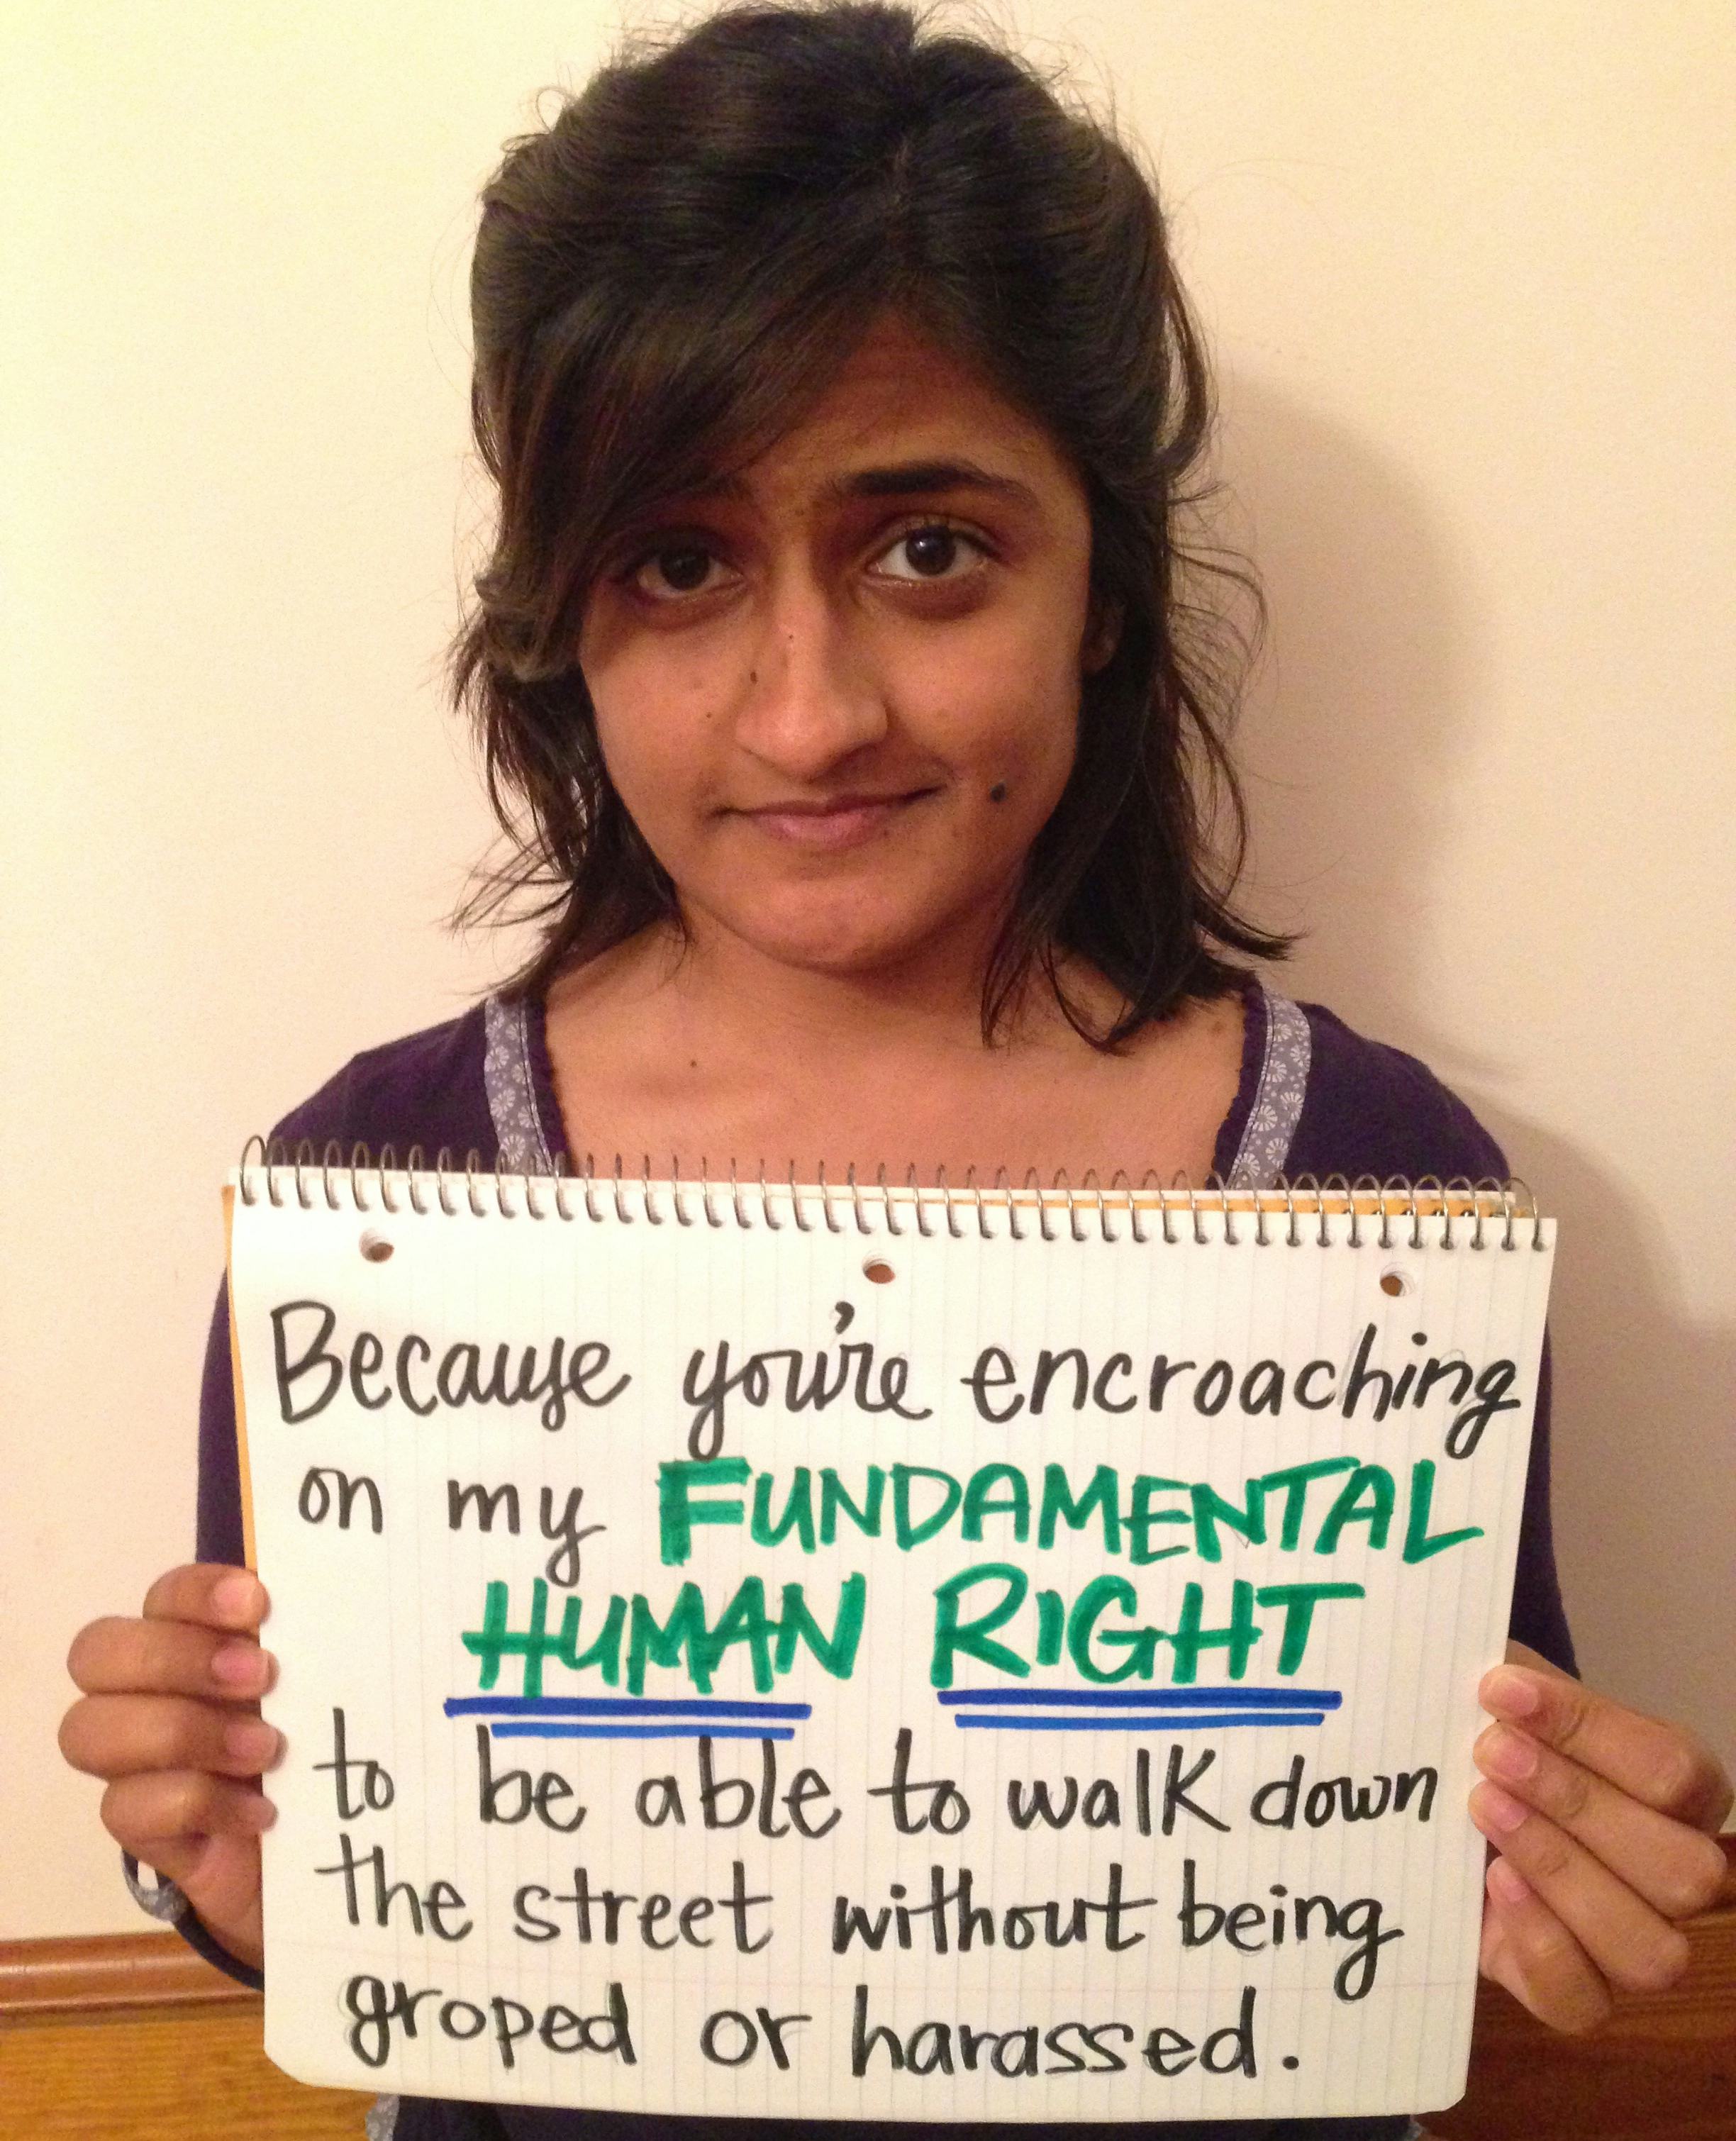 Because you're encroaching
on my FUNDAMENTAL
HUMAN RIGHT
to be able to walk down
the street without being
groped or harassed.